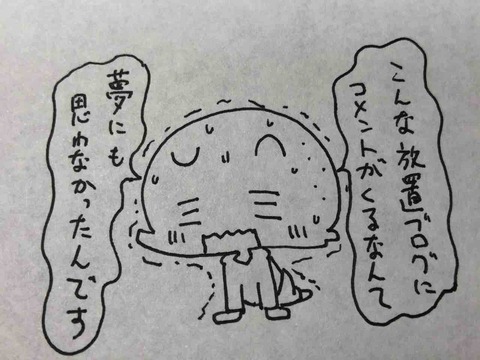 こんな放置ブログに
コメントがくるなんて
夢にも
思わなかったんです